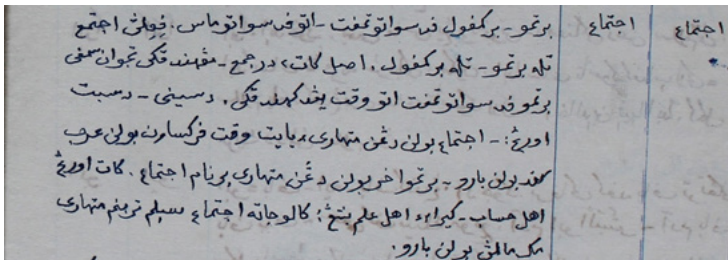 اجتماع اجتماع برتمو - برکمفول فد سواتو تمفت - اتو فد سواتو ماس. فعلڽ اجتمع
تله برتمو - تله برکمفول. اصل کات، در جمع - مڠهندقکي تجوان سمڤي
برتمو فد سواتو تمفت اتو وقت يڠ دکهندقکي. دسيني - دسبت
اورڠ: - اجتماع بولن دڠن متهاري، ايت وقت فرکسارن بولن عرب
کفد بولن بارو - برتمو اخر بولن دڠن متهاري برنام اجتماع. کات اورڠ
اهل حساب - کيرا٢ اهل علم بنتڠ: کالو جاته اجتماع سبلم تربنم متهاري
مک مالمڽ بولن بارو.